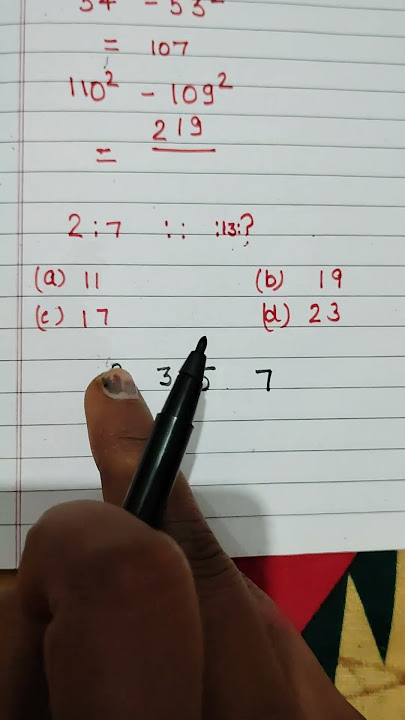 54² - 53²
= 107
110² - 109²
= 219
2 : 7 : : :13:?
(a) 11 (b) 19
(c) 17 (d) 23
3 5 7